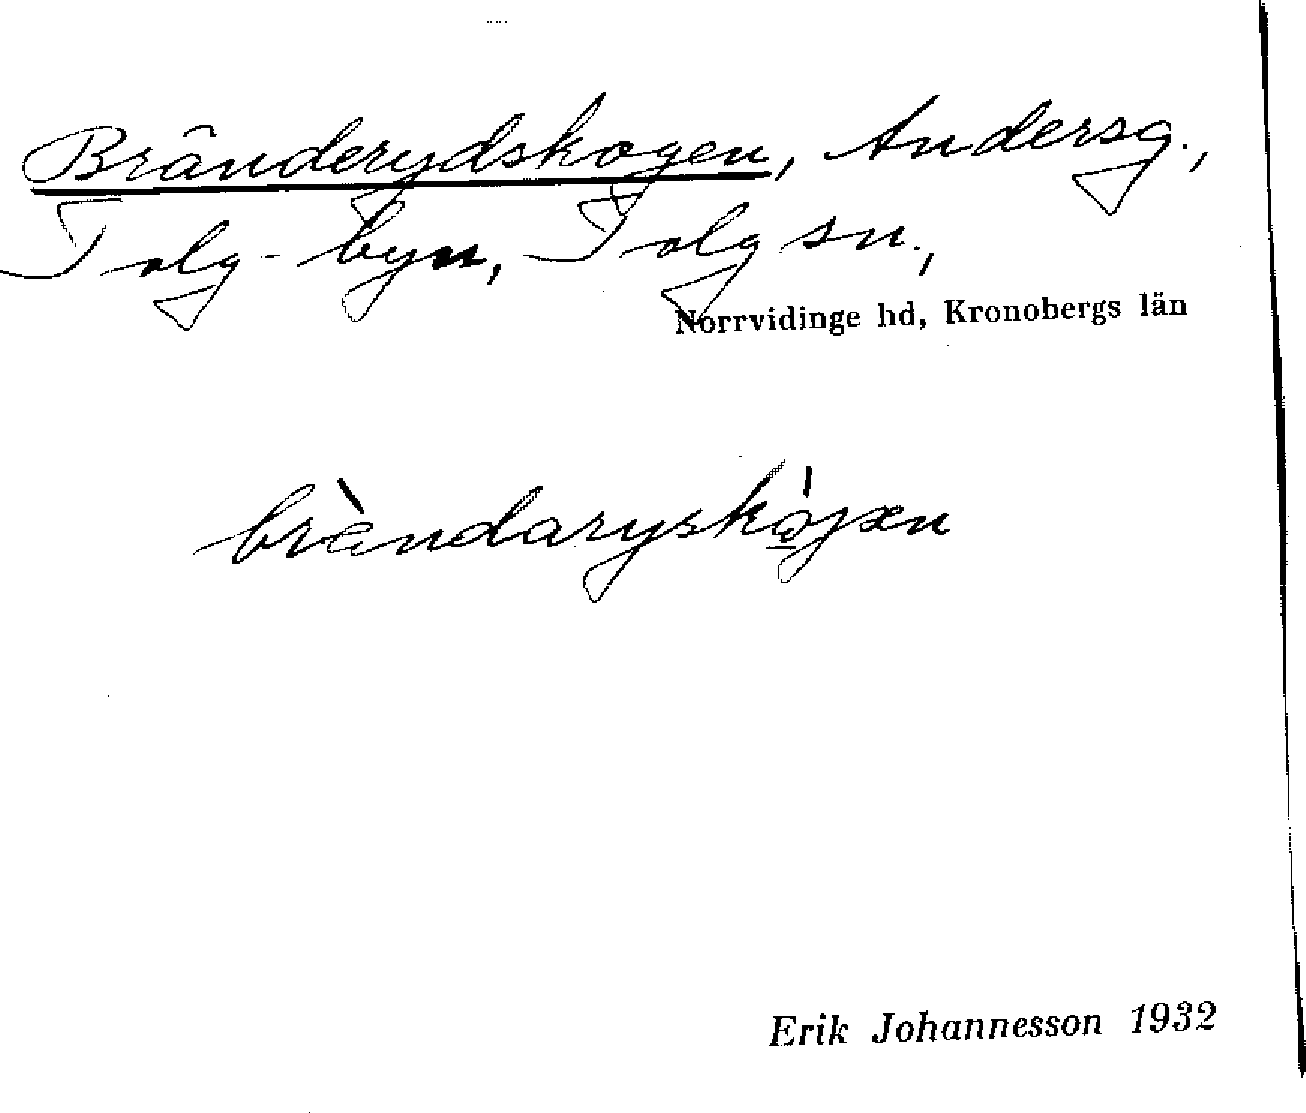 Bränderydskogen, Andersg.,
Tolg-byn, Tolg sn.,
Norrvidinge hd, Kronobergs län
bràndaryskò̠gæn
Erik Johannesson 1932